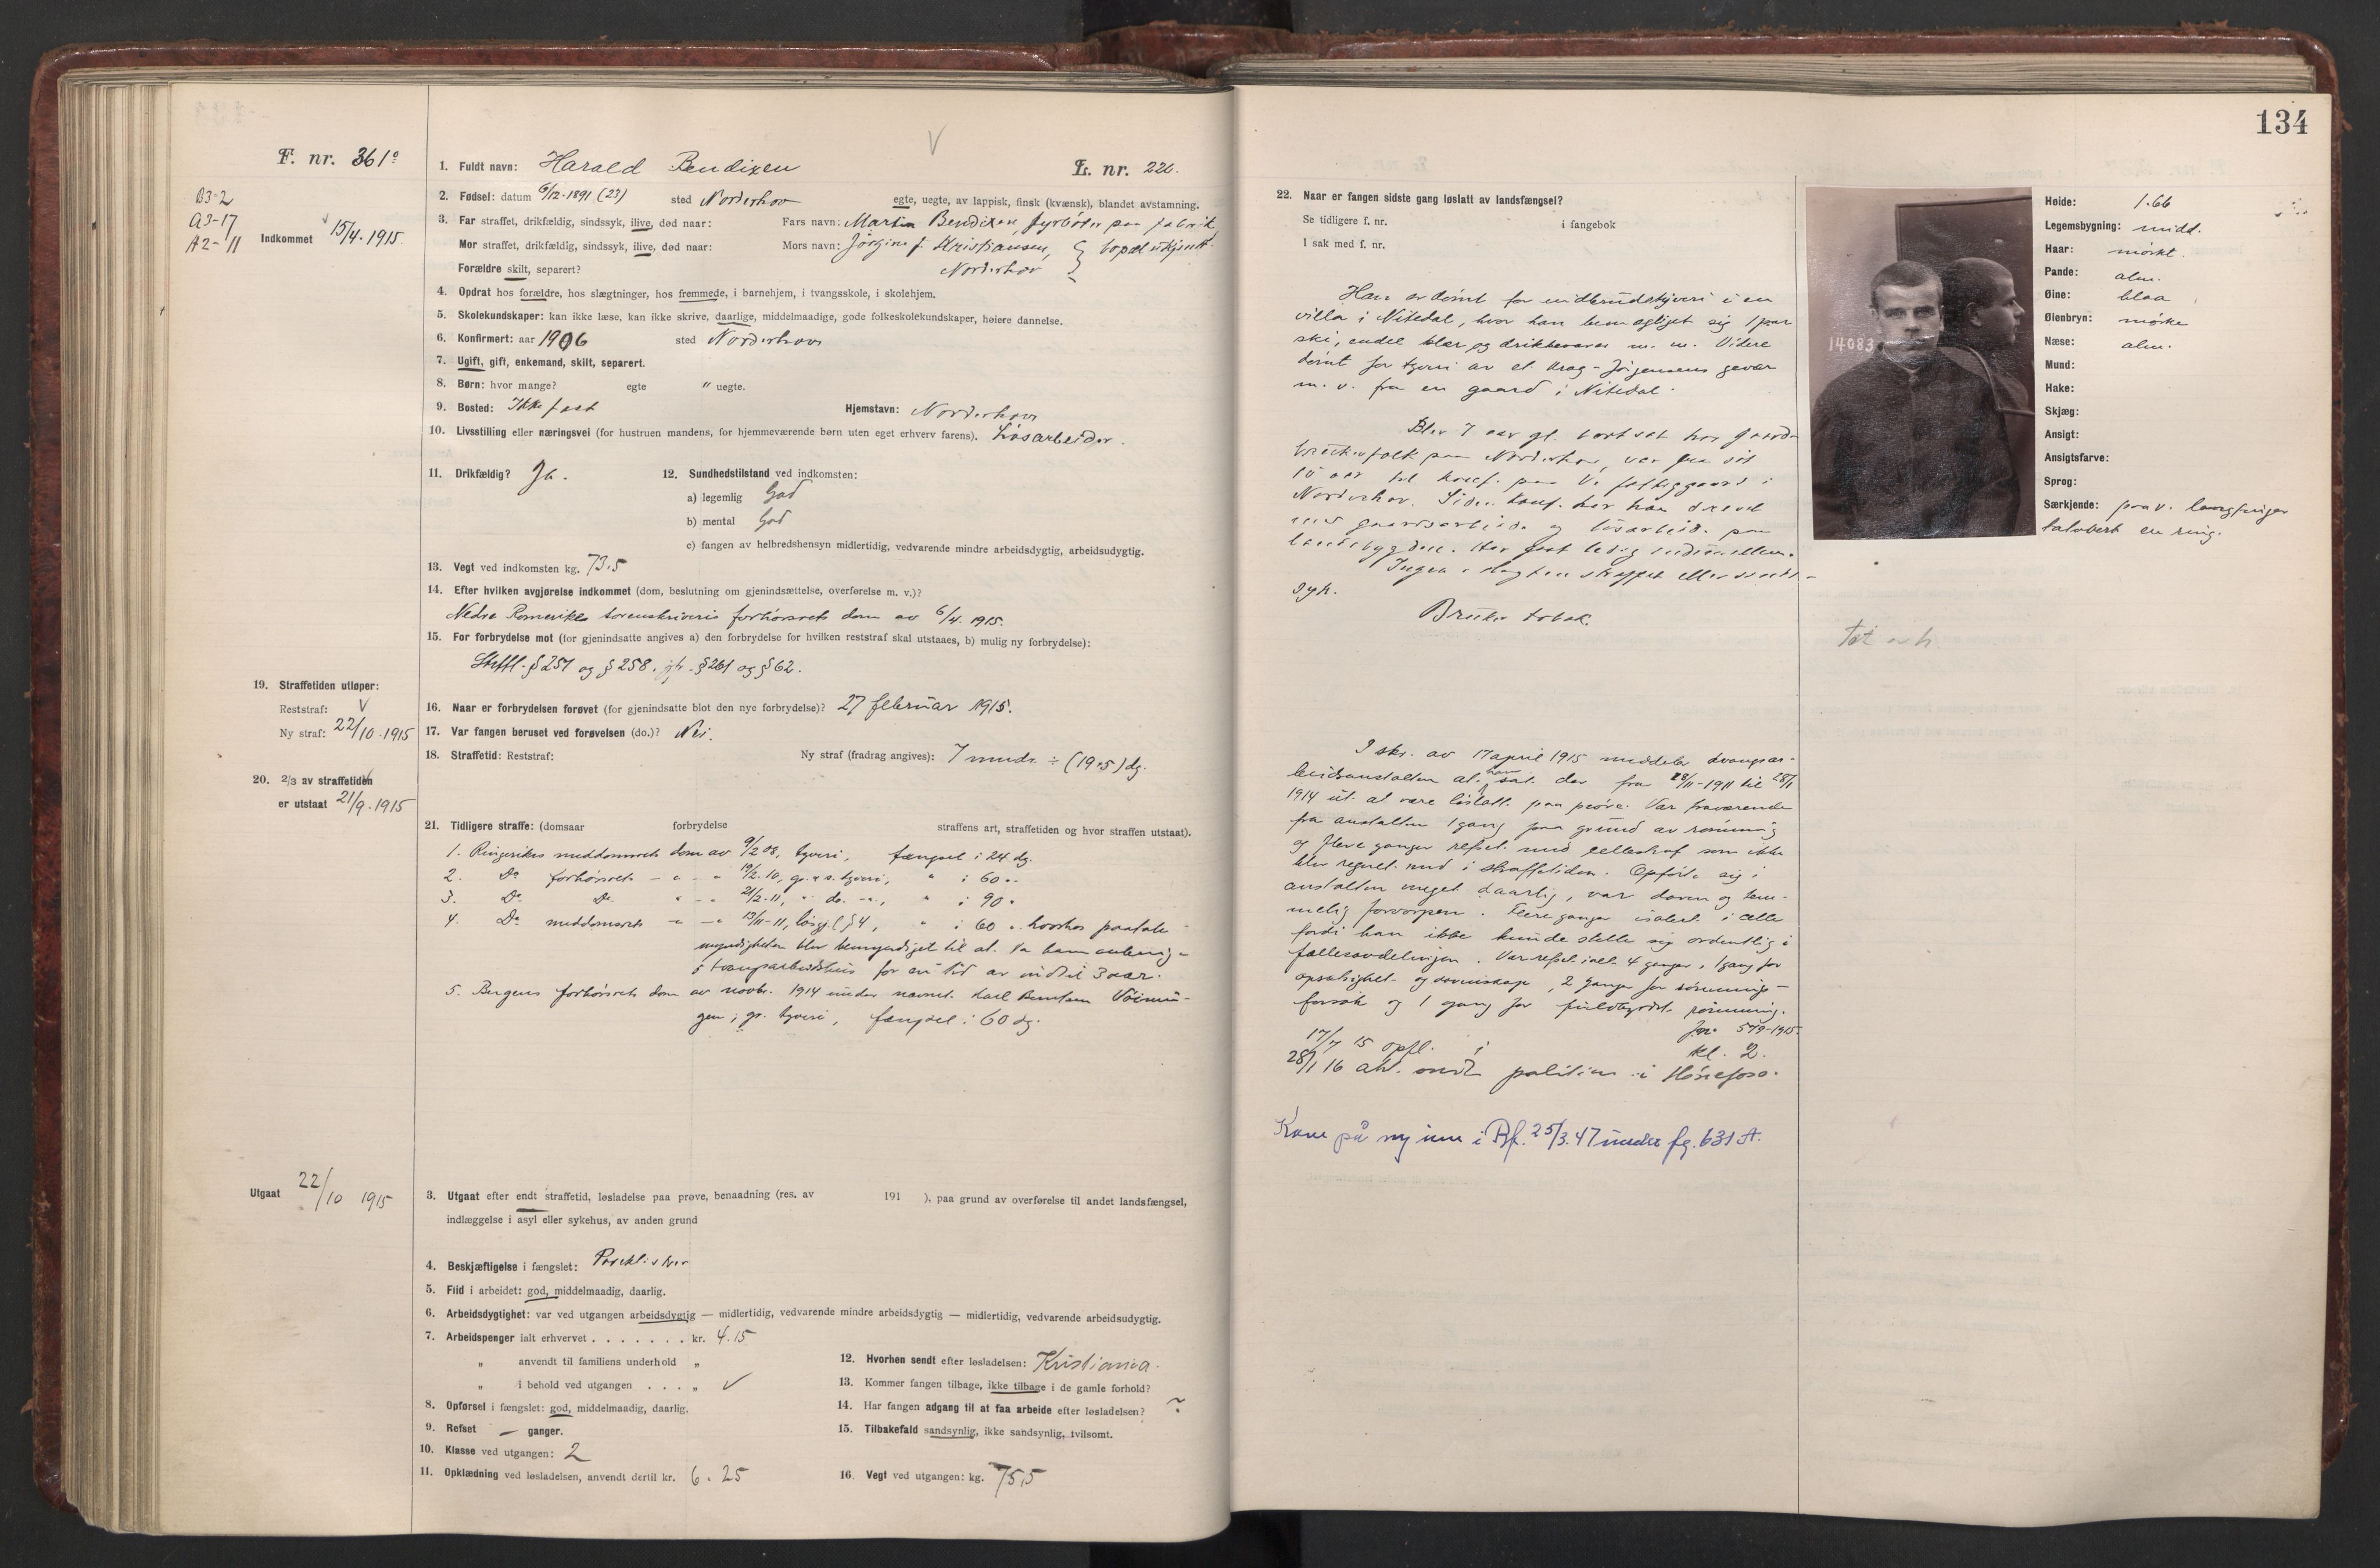 134
F. nr. 361a
B3-2
A3-17
A2-11
Indkommet 15/4. 1915.
L. nr. 222.
1. Fuldt navn: Harald Bendixen
2. Fødsel: datum 6/12. 1891 (23) sted Norderhov egte, uegte, av lappisk, finsk (kvænsk), blandet avstamning.
3. Far straffet, drikfældig, sindssyk, ilive, død naar: Fars navn: Martin Bendixen, fyrbøter paa fabrik
Mor straffet, drikfældig, sindssyk, ilive, død naar: Mors navn: Jørgine f. Kristiansen, bopæl ukjendt.
Forældre skilt, separert? Norderhov
4. Opdrat hos forældre, hos slægtninger, hos fremmede, i barnehjem, i tvangsskole, i skolehjem.
5. Skolekundskaper: kan ikke læse, kan ikke skrive, daarlige, middelmaadige, gode folkeskolekundskaper, høiere dannelse.
6. Konfirmert: aar 1906 sted Norderhov
7. Ugift, gift, enkemand, skilt, separert.
8. Børn: hvor mange? egte " uegte.
9. Bosted: Ikke fast Hjemstavn: Norderhov
10. Livsstilling eller næringsvei (for hustruen mandens, for hjemmeværende børn uten eget erhverv farens). Løsarbeider.
11. Drikfældig? Ja. 12. Sundhedstilstand ved indkomsten:
a) legemlig God
b) mental God
c) fangen av helbredshensyn midlertidig, vedvarende mindre arbeidsdygtig, arbeidsudygtig.
13. Vegt ved indkomsten kg. 73.5
14. Efter hvilken avgjørelse indkommet (dom, beslutning om gjenindsættelse, overførelse m. v.)?
Nedre Romerikes sorenskriveris forhørsrets dom av 6/4. 1915.
15. For forbrydelse mot (for gjenindsatte angives a) den forbrydelse for hvilken reststraf skal utstaaes, b) mulig ny forbrydelse):
Strffl. § 257 og § 258. jfr. § 261 og § 62.
16. Naar er forbrydelsen forøvet (for gjenindsatte blot den nye forbrydelse)? 27 februar 1915.
17. Var fangen beruset ved forøvelsen (do.)? Nei.
18. Straffetid: Reststraf: Ny straf (fradrag angives): 7 mndr. ÷ (19.5) dg.
19. Straffetiden utløper:
Reststraf:
Ny straf: 22/10. 1915
20. 2/3 av straffetiden
er utstaat 21/9. 1915
21. Tidligere straffe: (domsaar forbrydelse straffens art, straffetiden og hvor straffen utstaat).
1. Ringerikes meddomsrets dom av 9/2 08, tyveri, fængsel i 24 dg.
2. Do forhørsrets - " - " 19/2. 10, gr. " s. tyveri, " i 60 "
3. Do Do " - " 21/2. 11, " do. - ", " i 90 "
4. Do meddomsrets - " - " 13/11-11, løsgj. l § 4, " i 60 ". hvorhos paatale-
myndigheten blev bemyndiget til at
i tvangsarbeidshus for en tid av indtil 3 aar.
5. Bergens forhørsrets dom av novbr. 1914 under navnet Karl
gr. tyveri, fængsel i 60 dg.
Utgaat 22/10 1915
3. Utgaat efter endt straffetid, løsladelse paa prøve, benaadning (res. av 191 ), paa grund av overførelse til andet landsfængsel,
indlæggelse i asyl eller sykehus, av anden grund
4. Beskjæftigelse i fængslet:
5. Flid i arbeidet: god, middelmaadig, daarlig.
6. Arbeidsdygtighet: var ved utgangen arbeidsdygtig — midlertidig, vedvarende mindre arbeidsdygtig — midlertidig, vedvarende arbeidsudygtig.
7. Arbeidspenger ialt erhvervet . . . . . . . kr. 4.15
" anvendt til familiens underhold "
" i behold ved utgangen . . . "
8. Opførsel i fængslet: god, middelmaadig, daarlig.
9. Refset — ganger.
10. Klasse ved utgangen: 2
11. Opklædning ved løsladelsen, anvendt dertil kr. 6.25
12. Hvorhen sendt efter løsladelsen: Kristiania.
13. Kommer fangen tilbage, ikke tilbage i de gamle forhold?
14. Har fangen adgang til at faa arbeide efter løsladelsen? ?
15. Tilbakefald sandsynlig, ikke sandsynlig, tvilsomt.
16. Vegt ved utgangen: kg. 75,5
22. Naar er fangen sidste gang løslatt av landsfængsel?
Se tidligere f. nr. i fangebok
I sak med f. nr.
Han er dømt for indbrudstyveri i en
villa i Nitedal, hvor han bemægtiget sig 1 par
ski, endel klær og drikkevarer m. m. Videre
dømt for tyveri av et Krag-Jørgensens gevær
m. v. fra en gaard i Nitedal.
Blev 7 aar gl. bortsat hos gaard-
brukerfolk paa Norderhov, var fra sit
10 aar til konf. paa fattiggaard i
Norderhov. Siden konf. har han drevet
med gaardsarbeide og løsarbeide paa
landsbygden. Har gaat ledig indimellem.
Ingen i slegten straffet eller sinds-
syk.
Bruker tobak.
I skr. av 17 april 1915 meddeler tvangsar-
beidsanstalten at han sat der fra 28/11-1911 til 28/1
1914 ut. at være løslatt paa prøve. Var fraværende
fra anstalten 1 gang paa grund av rømning
og flere ganger refset med cellestraf som ikke
blev regnet med i straffetiden. Opførte sig i
anstalten meget daarlig, var doven og tem-
melig forvorpen. Flere ganger isolert i celle
fordi han ikke kunde stelle sig ordentlig i
fællesavdelingen. Var refset ialt 4 ganger, 1 gang for
opsætsighet og dovenskap, 2 ganger for rømnings-
forsøk og 1 gang for fuldbyrdet rømning.
17/7 15 opfl. i kl. 2.
28/1 16 politiet i Hønefoss.
Kom på ny inn i Bf. 25/3.47 under fg. 631 A.
14083
Høide: 1.66
Legemsbygning: midd.
Haar: mørkt.
Pande: alm.
Øine: blaa
Øienbryn: mørke
Næse: alm.
Mund:
Hake:
Skjæg:
Ansigt:
Ansigtsfarve:
Sprog:
Særkjende: paa v. langfinger
tatovert en ring.